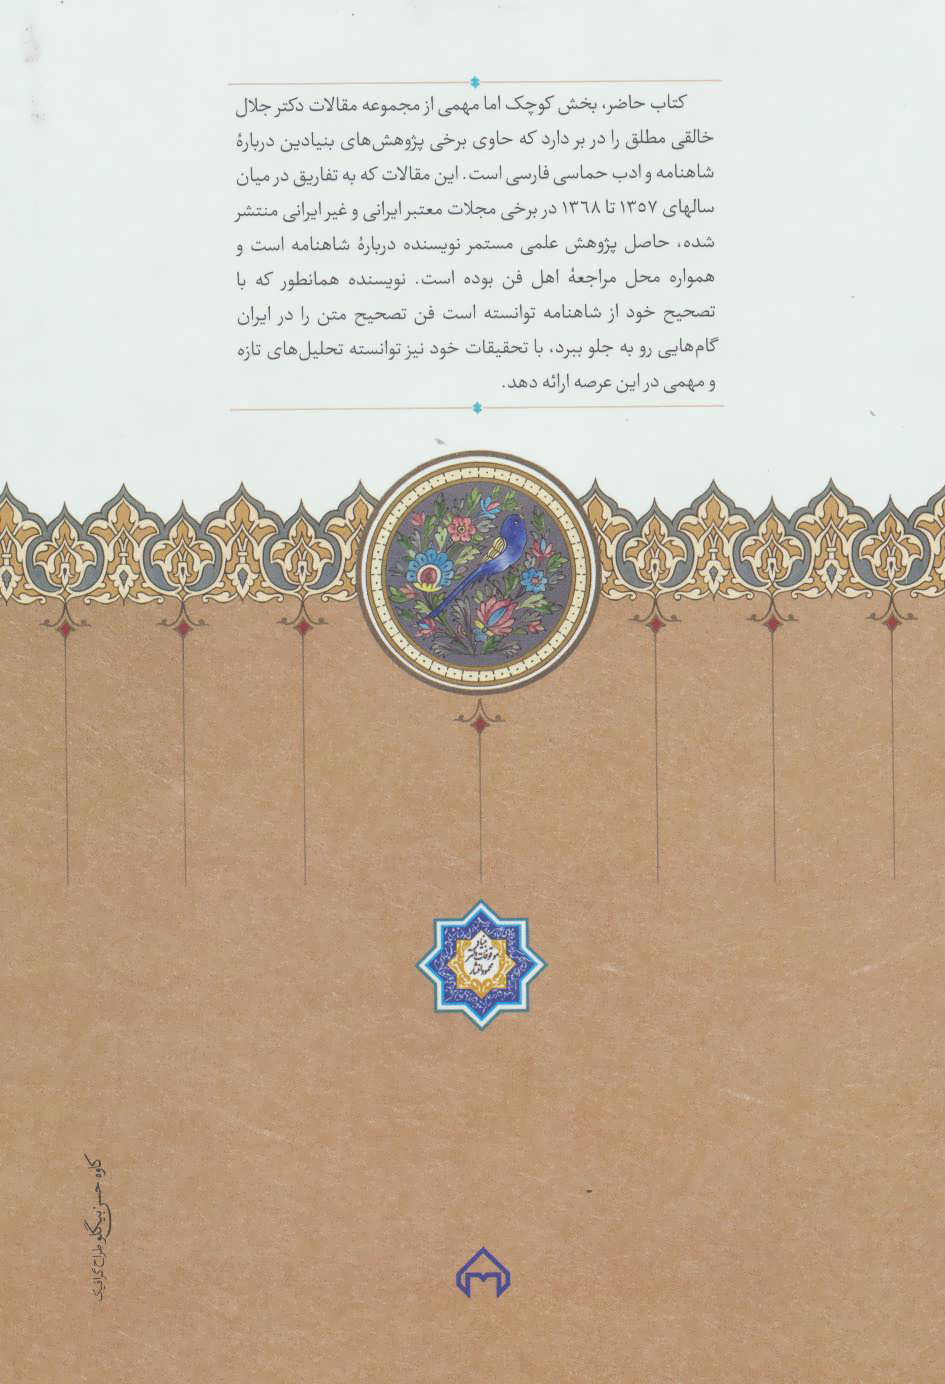 کتاب حاضر، بخش کوچک اما مهمی از مجموعه مقالات دکتر جلال
خالقی مطلق را در بر دارد که حاوی برخی پژوهش‌های بنیادین دربارهٔ
شاهنامه و ادب حماسی فارسی است. این مقالات که به تفاریق در میان
سالهای ۱۳۵۷ تا ۱۳۶۸ در برخی مجلات معتبر ایرانی و غیر ایرانی منتشر
شده، حاصل پژوهش علمی مستمر نویسنده دربارهٔ شاهنامه است و
همواره محل مراجعهٔ اهل فن بوده است. نویسنده همانطور که با
تصحیح خود از شاهنامه توانسته است فن تصحیح متن را در ایران
گام‌هایی رو به جلو ببرد، با تحقیقات خود نیز توانسته تحلیل‌های تازه
و مهمی در این عرصه ارائه دهد.
بنیاد
موقوفات دکتر
محمود افشار
کاوه حسن بیگلو طراح گرافیک